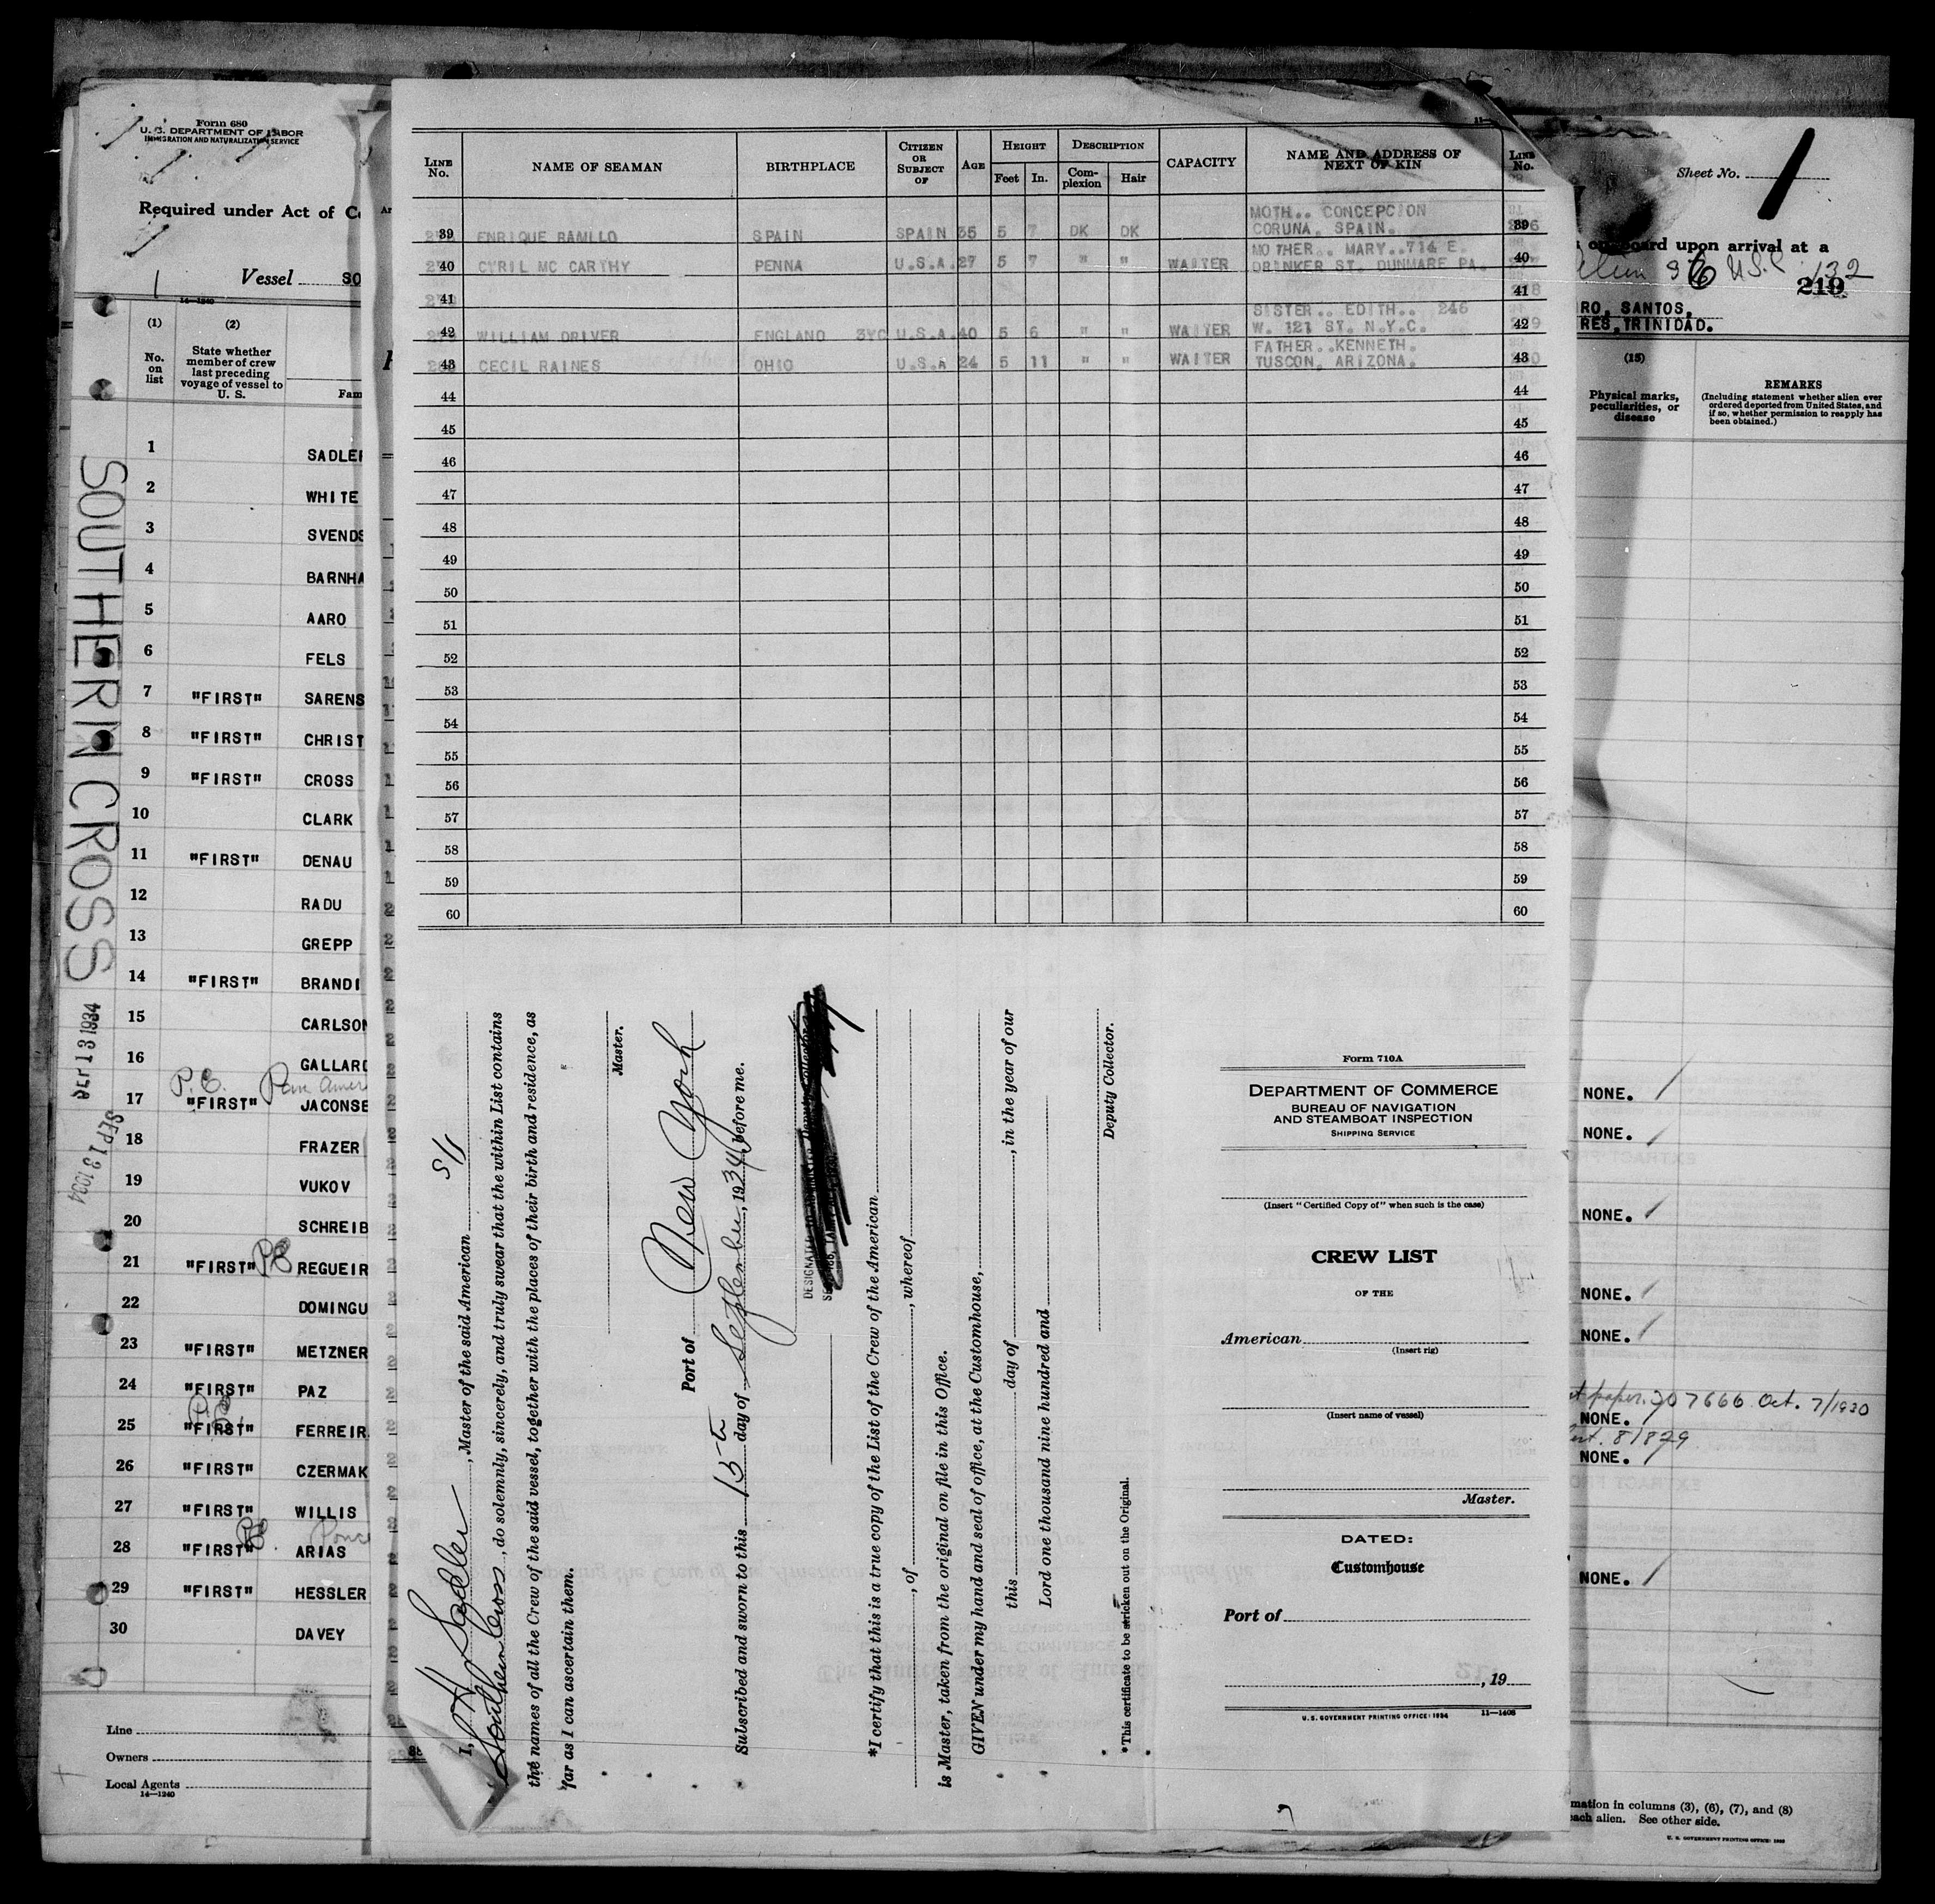 Form 680
U. S. DEPARTMENT OF LABOR
IMMIGRATION AND NATURALIZATION SERVICE
Required under Act of C
1
Vessel SO
14—1240
(1)
(2)
No. on list
State whether member of crew last preceding voyage of vessel to U. S.
Fam
SOUTHERN CROSS
SEP 13 1934
SEP 13 1934
1 SADLER
2 WHITE
3 SVENDS
4 BARNHA
5 AARO
6 FELS
7 "FIRST" SARENS
8 "FIRST" CHRIST
9 "FIRST" CROSS
10 CLARK
11 "FIRST" DENAU
12 RADU
13 GREPP
14 "FIRST" BRANDI
15 CARLSON
16 GALLARD
P.E.
17 "FIRST" JACONSE
18 FRAZER
19 VUKOV
20 SCHREIB
21 "FIRST" PE REGUEIR
22 DOMINGU
23 "FIRST" METZNER
24 "FIRST" PAZ
P.E.
25 "FIRST" FERREIR
26 "FIRST" CZERMAK
27 "FIRST" WILLIS
PE. Ponce
28 "FIRST" ARIAS
29 "FIRST" HESSLER
30 DAVEY
Line
Owners
Local Agents
14—1240
LINE No. NAME OF SEAMAN BIRTHPLACE CITIZEN OR SUBJECT OF AGE HEIGHT DESCRIPTION CAPACITY NAME AND ADDRESS OF NEXT OF KIN LINE No.
Feet In. Complexion Hair
MOTH.. CONCEPCION
39 ENRIQUE RAMILO SPAIN SPAIN 35 5 7 DK DK CORUNA, SPAIN. 39
MOTHER.. MARY..714 E.
40 CYRIL MC CARTHY PENNA U.S.A. 27 5 7 " " WAITER DRINKER ST. DUNMARE PA. 40
41 41
SISTER.. EDITH.. 246
42 WILLIAM DRIVER ENGLAND 3YC U.S.A. 40 5 6 " " WAITER W. 121 ST. N.Y.C. 42
FATHER..KENNETH.
43 CECIL RAINES OHIO U.S.A 24 5 11 " " WAITER TUSCON, ARIZONA. 43
44 44
45 45
46 46
47 47
48 48
49 49
50 50
51 51
52 52
53 53
54 54
55 55
56 56
57 57
58 58
59 59
60 60
I, H Sadler, Master of the said American S/S
Southern Cross, do solemnly, sincerely, and truly swear that the within List contains
the names of all the Crew of the said vessel, together with the places of their birth and residence, as
far as I can ascertain them.
Master.
Port of New York
Subscribed and sworn to this 15th day of September, 1934, before me.
*I certify that this is a true copy of the List of the Crew of the American
, of , whereof
is Master, taken from the original on file in this Office.
GIVEN under my hand and seal of office, at the Customhouse,
this day of , in the year of our
Lord one thousand nine hundred and
Deputy Collector.
*This certificate to be stricken out on the Original.
Form 710A
DEPARTMENT OF COMMERCE
BUREAU OF NAVIGATION
AND STEAMBOAT INSPECTION
SHIPPING SERVICE
(Insert "Certified Copy of" when such is the case)
CREW LIST
OF THE
American
(Insert rig)
(Insert name of vessel)
Master.
DATED:
Customhouse
Port of
, 19
U. S. GOVERNMENT PRINTING OFFICE: 1934 11—1408
Sheet No. 1
on board upon arrival at a
U.S.C. 132
219
RO, SANTOS,
RES, TRINIDAD.
(15)
Physical marks, peculiarities, or disease
REMARKS
(Including statement whether alien ever ordered deported from United States, and if so, whether permission to reapply has been obtained.)
NONE.
NONE.
NONE.
NONE.
NONE.
paper. 207666 Oct. 7/1930
NONE.
81829
NONE.
NONE.
mation in columns (3), (6), (7), and (8)
each alien. See other side.
U. S. GOVERNMENT PRINTING OFFICE: 1930